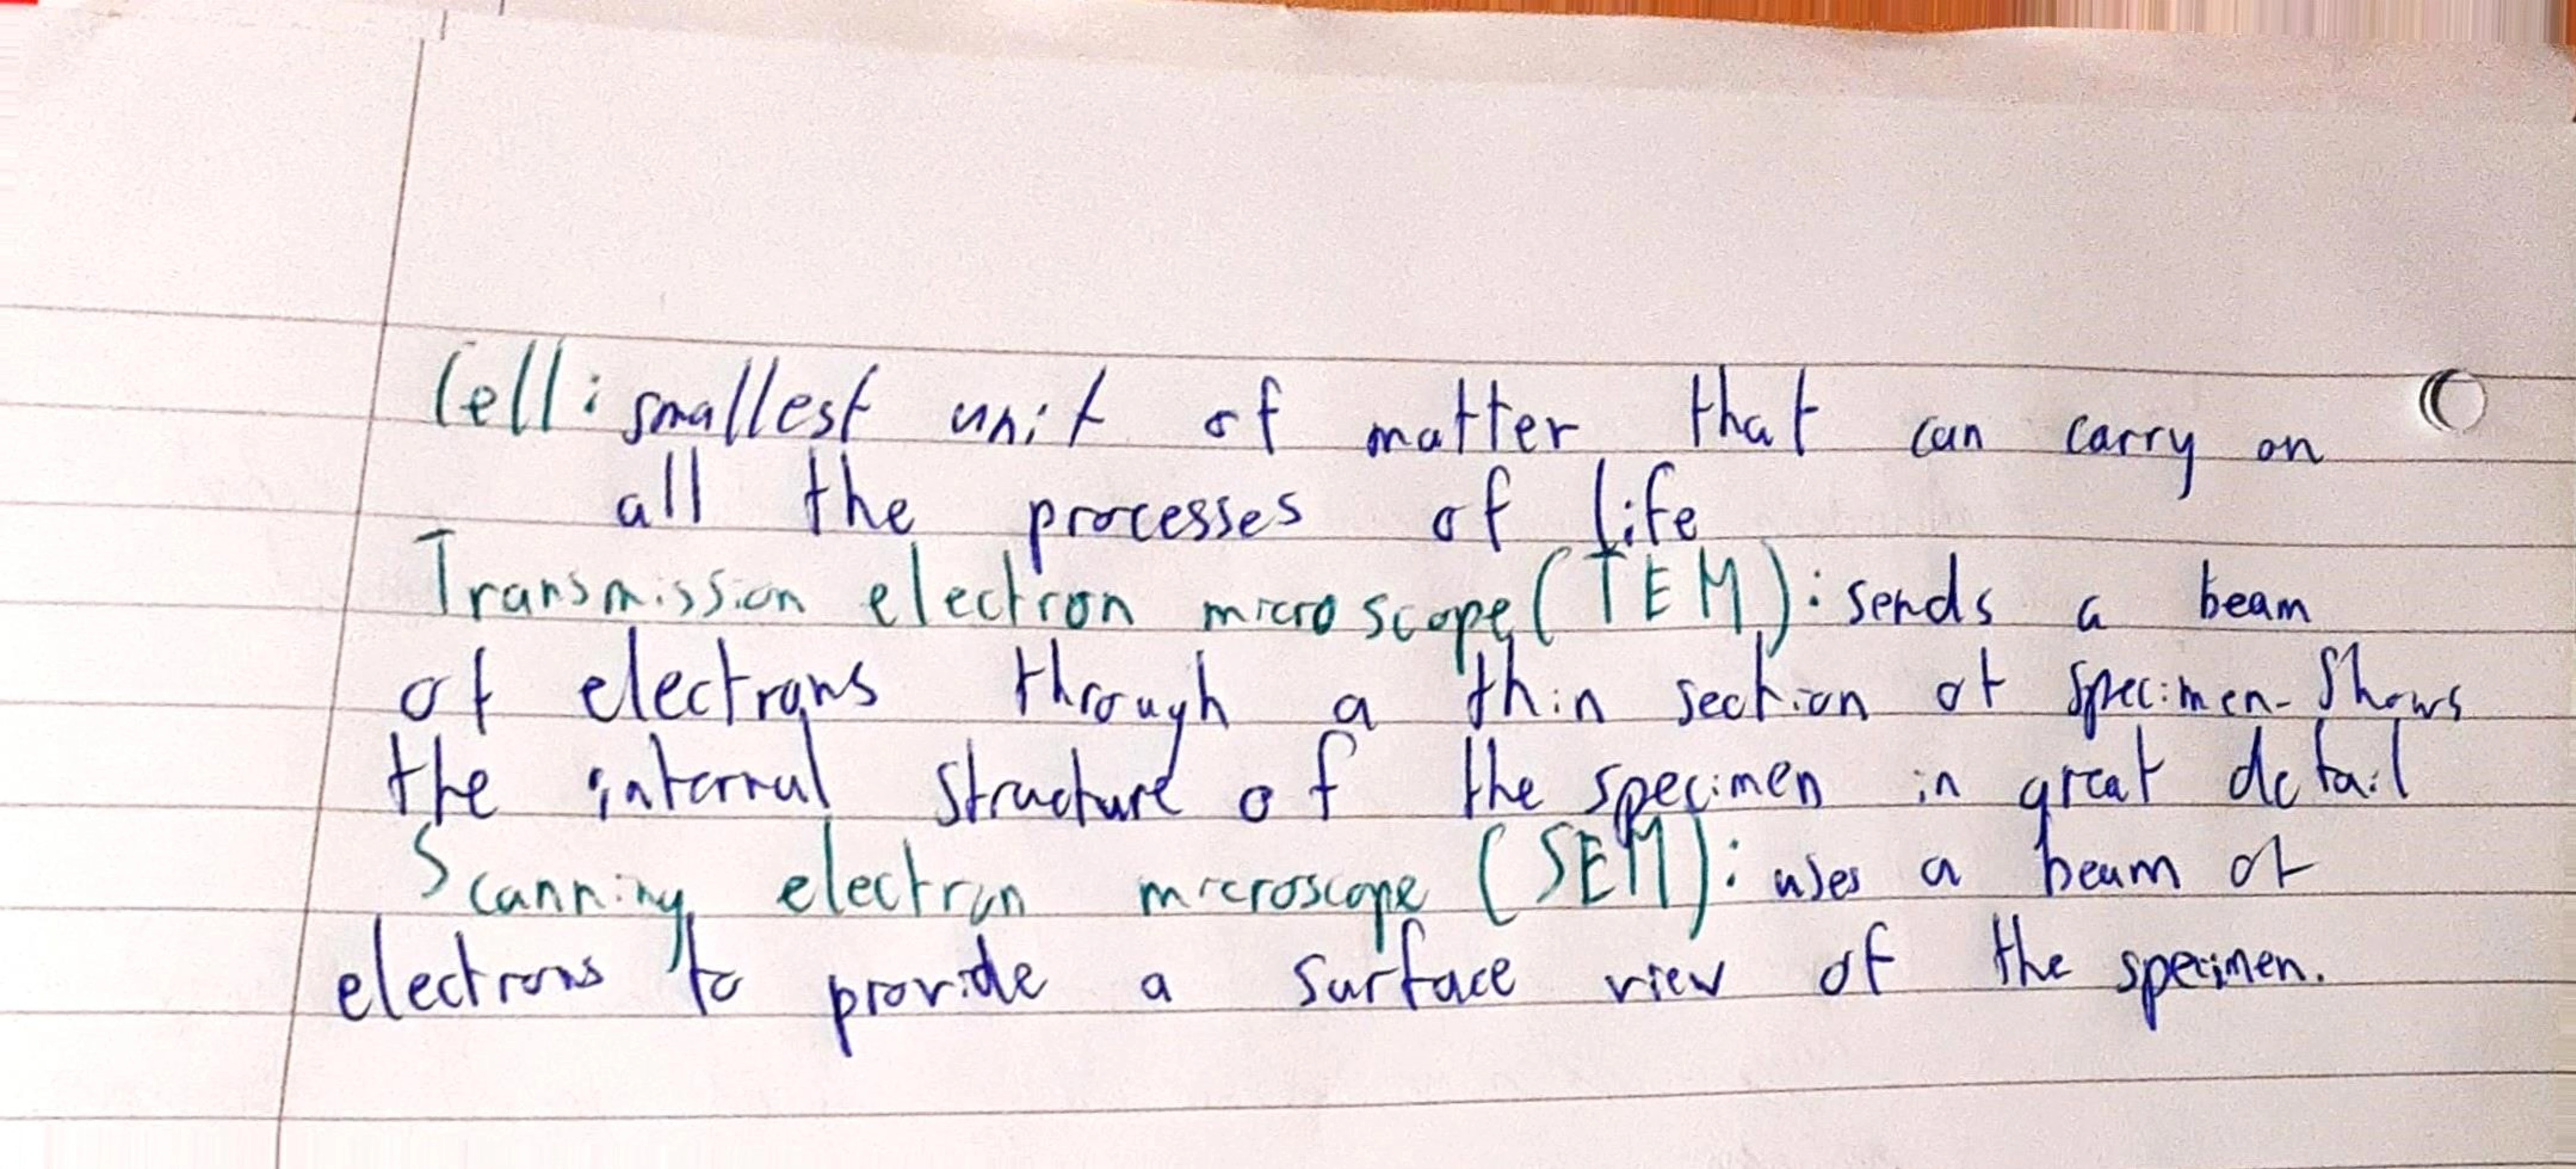 Cell: smallest unit of matter that can carry on
all the processes of life
Transmission electron microscope (TEM): sends a beam
of electrons through a thin section of specimen- Shows
the internal structure of the specimen in great detail
Scanning electron microscope (SEM): uses a beam of
electrons to provide a surface view of the specimen.